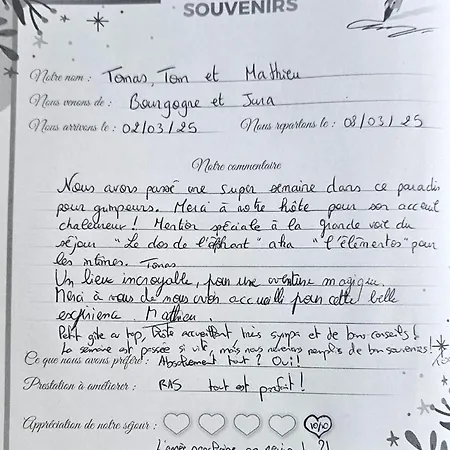 SOUVENIRS
Notre nom : Tomas, Tom et Mathieu
Nous venons de : Bourgogne et Jura
Nous arrivons le : 02/03/25 Nous repartons le : 08/03/25
Notre commentaire
Nous avons passé une super semaine dans ce paradis
pour grimpeurs. Merci à notre hôte pour son accueil
chaleureux ! Mention spéciale à la grande voie du
séjour "Le dos de l'éléphant" aka "l'élémentos" pour
les intimes. Tomas
Un lieu incroyable, pour une aventure magique.
Merci à vous de nous avoir accueilli pour cette belle
expérience. Mathieu.
Petit gîte au top, hôte accueillant très sympa et de bons conseils !
La semaine est passée si vite, mais nos revenons remplis de bon souvenirs !
Ce que nous avons préféré : Absolument tout ? Oui !
Prestation à améliorer : RAS tout est parfait !
Appréciation de notre séjour : 10/10
L'année prochaine on